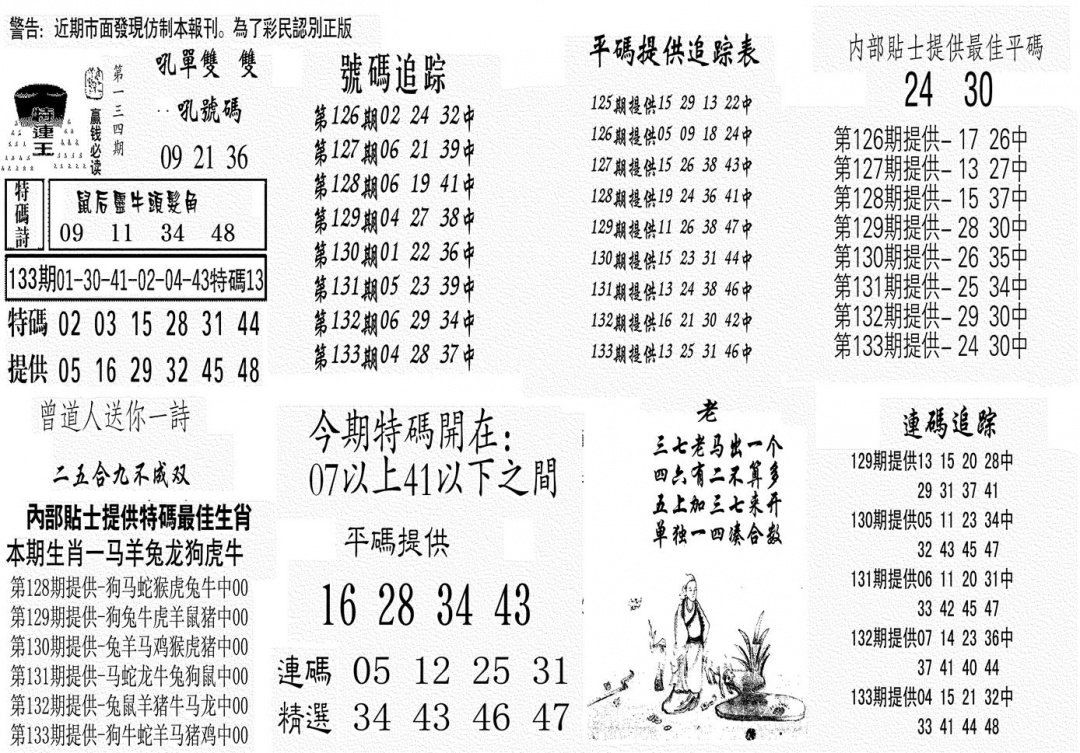 警告: 近期市面發現仿制本報刊。為了彩民認別正版
特連王
贏钱必读
第一三四期
吼單雙 雙
吼號碼
09 21 36
特碼詩
鼠后靈牛頭髮角
09 11 34 48
133期01-30-41-02-04-43特碼13
特碼 02 03 15 28 31 44
提供 05 16 29 32 45 48
號碼追踪
第126期02 24 32中
第127期06 21 39中
第128期06 19 41中
第129期04 27 38中
第130期01 22 36中
第131期05 23 39中
第132期06 29 34中
第133期04 28 37中
平碼提供追踪表
125期提供15 29 13 22中
126期提供05 09 18 24中
127期提供15 26 38 43中
128期提供19 24 36 41中
129期提供11 26 38 47中
130期提供15 23 31 44中
131期提供13 24 38 46中
132期提供16 21 30 42中
133期提供13 25 31 46中
内部貼士提供最佳平碼
24 30
第126期提供- 17 26中
第127期提供- 13 27中
第128期提供- 15 37中
第129期提供- 28 30中
第130期提供- 26 35中
第131期提供- 25 34中
第132期提供- 29 30中
第133期提供- 24 30中
曾道人送你一詩
二五合九不成双
內部貼士提供特碼最佳生肖
本期生肖一马羊兔龙狗虎牛
第128期提供-狗马蛇猴虎兔牛中00
第129期提供-狗兔牛虎羊鼠猪中00
第130期提供-兔羊马鸡猴虎猪中00
第131期提供-马蛇龙牛兔狗鼠中00
第132期提供-兔鼠羊猪牛马龙中00
第133期提供-狗牛蛇羊马猪鸡中00
今期特碼開在:
07以上41以下之間
平碼提供
16 28 34 43
連碼 05 12 25 31
精選 34 43 46 47
老
三七老马出一个
四六有二不算多
五上加三七来开
单独一四凑合数
連碼追踪
129期提供13 15 20 28中
29 31 37 41
130期提供05 11 23 34中
32 43 45 47
131期提供06 11 20 31中
33 42 45 47
132期提供07 14 23 36中
37 41 40 44
133期提供04 15 21 32中
33 41 44 48